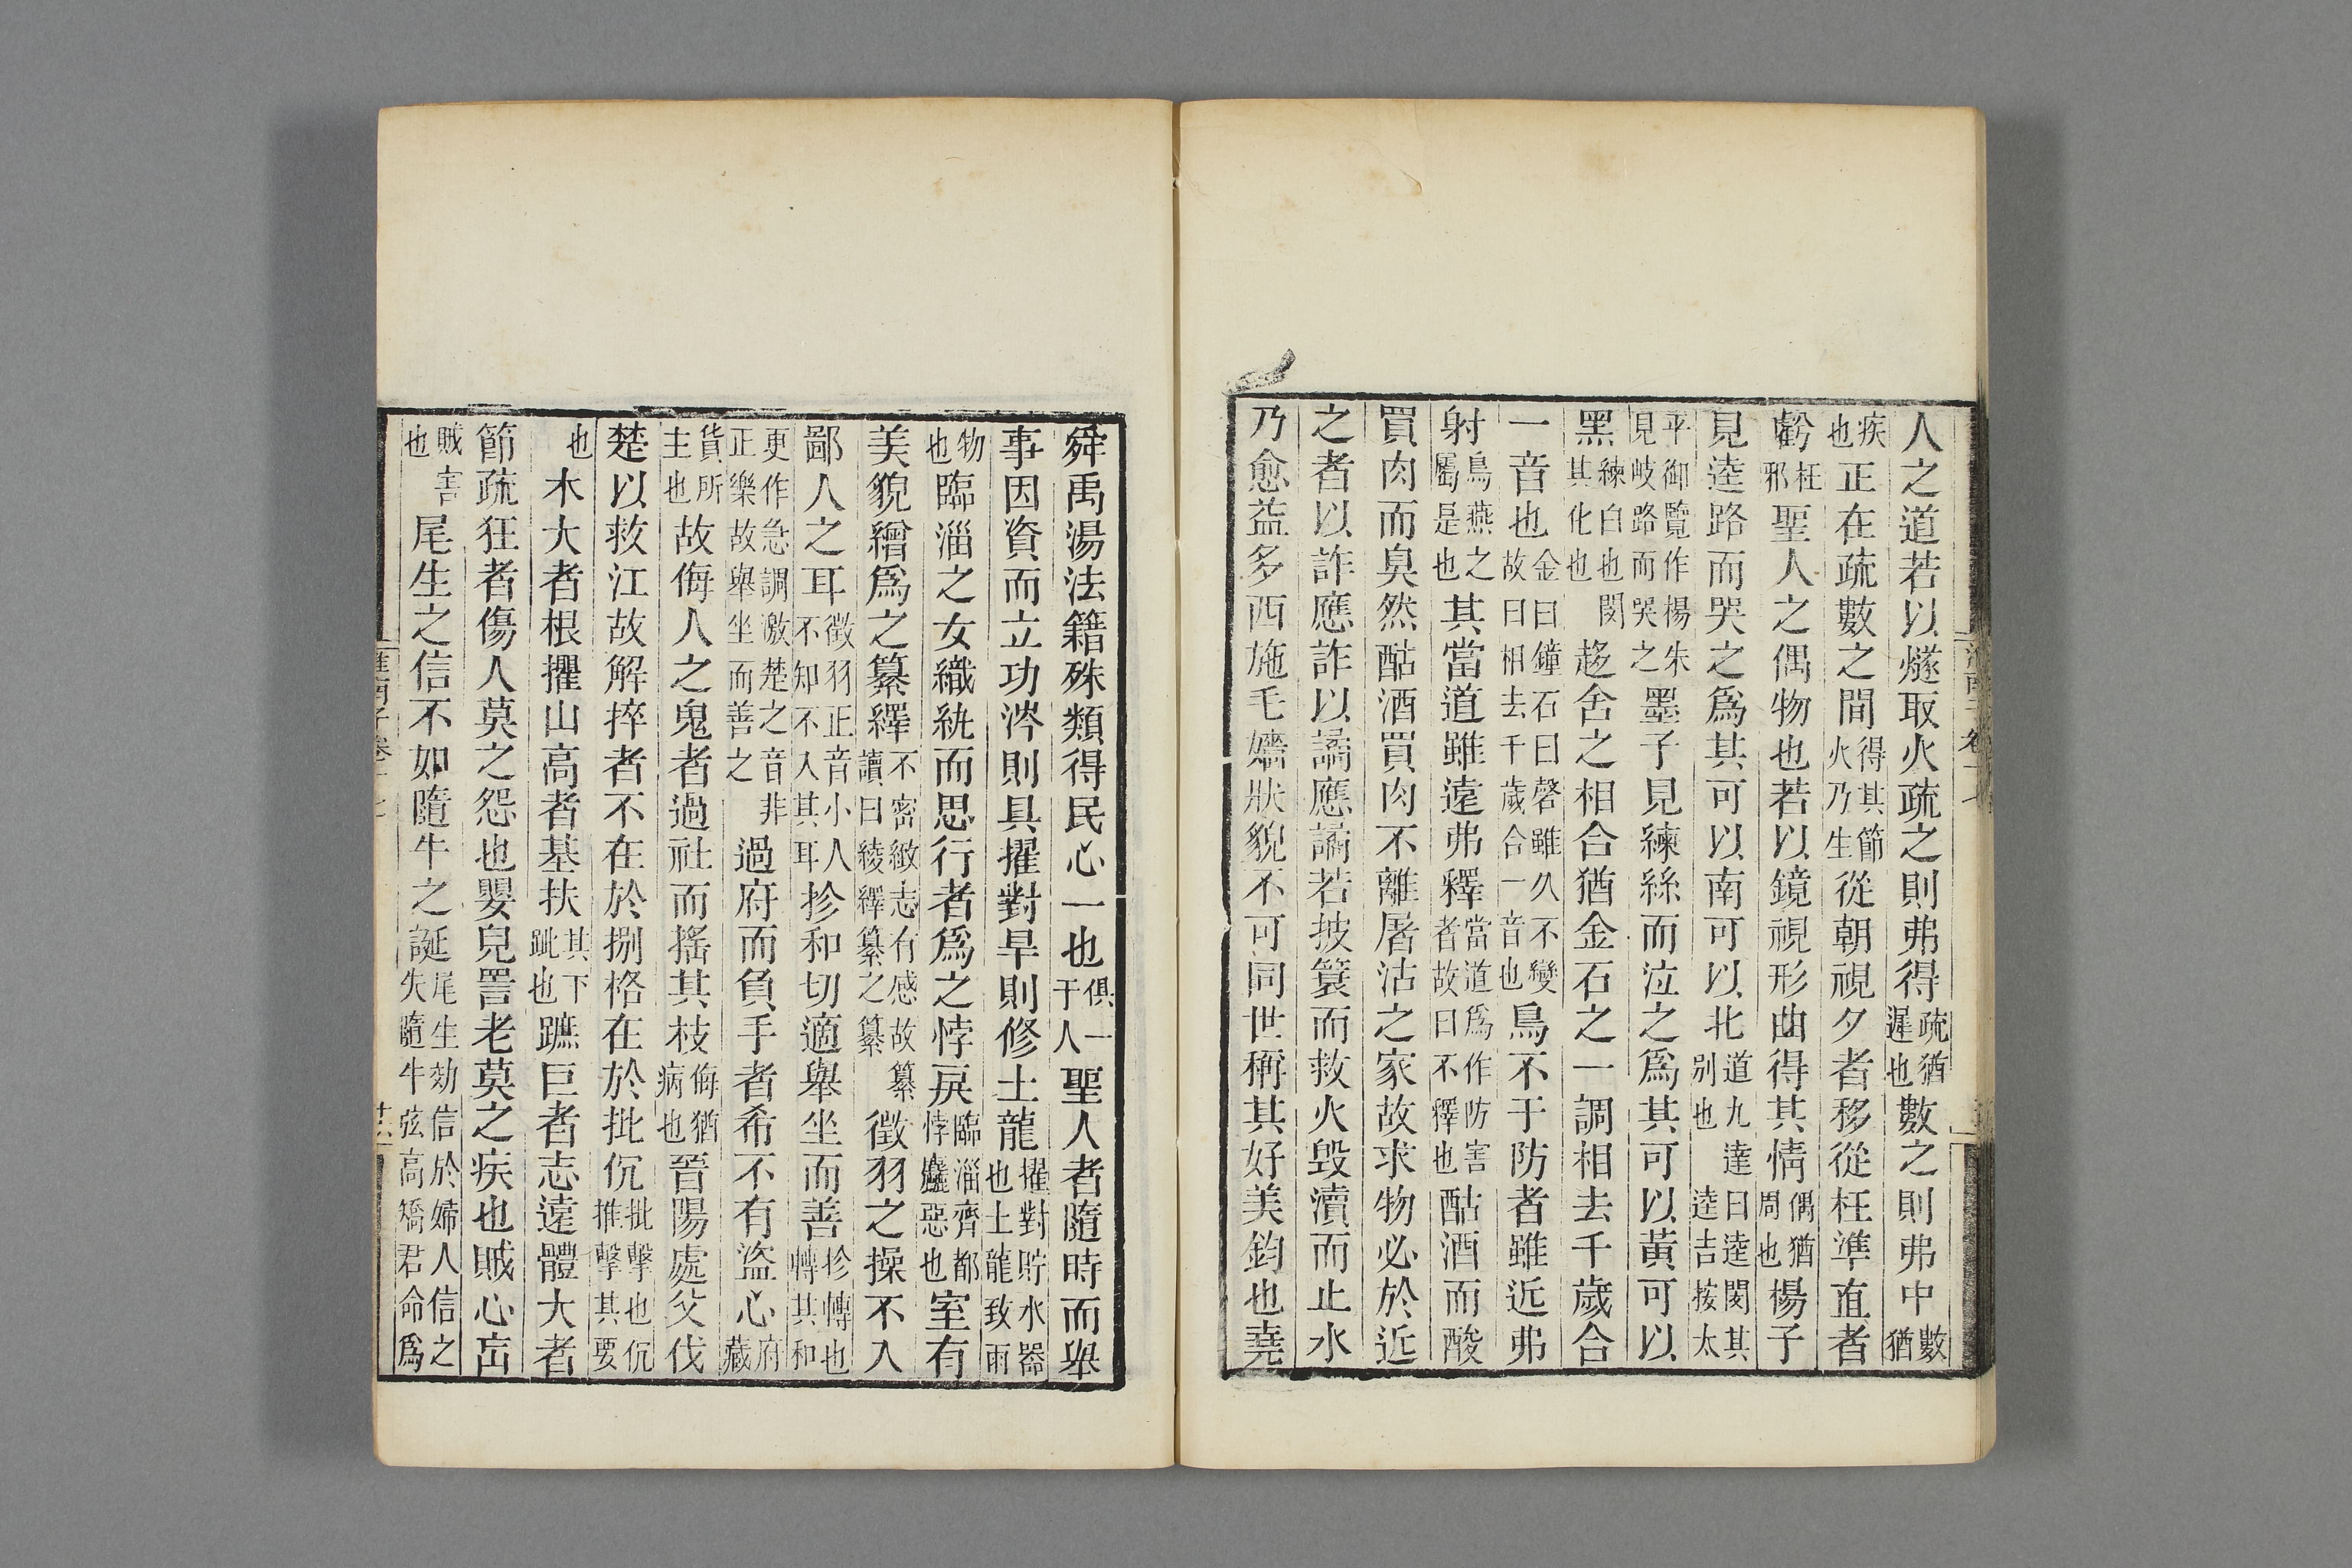 人之道若以燧取火疏之則弗得疏猶遲也數之則弗中數猶
疾也正在疏數之間得其節火乃生從朝視夕者移從枉準直者
虧枉邪聖人之偶物也若以鏡視形曲得其情偶猶周也楊子
見逵路而哭之爲其可以南可以北道九達曰逵閔其別也逵吉按太
平御覽作楊朱見岐路而哭之墨子見練絲而泣之爲其可以黃可以
黑練白也閔其化也趍舍之相合猶金石之一調相去千歲合
一音也金曰鐘石曰磬雖久不變故曰相去千歲合一音也鳥不干防者雖近弗
射鳥燕之屬是也其當道雖遠弗釋當道爲作防害者故曰不釋也酤酒而酸
買肉而臭然酤酒買肉不離屠沽之家故求物必於近
之者以詐應詐以譎應譎若披簑而救火毀瀆而止水
乃愈益多西施毛嬙狀貌不可同世稱其好美鈞也堯
舜禹湯法籍殊類得民心一也俱一于人聖人者隨時而舉
事因資而立功涔則具擢對旱則修土龍擢對貯水器也土龍致雨
物也臨淄之女織紈而思行者爲之悖戾臨淄齊都悖麤惡也室有
美貌繒爲之纂繹不密緻志有感故纂讀曰綾繹纂之纂徵羽之操不入
鄙人之耳徵羽正音小人不知不入其耳抮和切適舉坐而善抮轉也轉其和
更作急調激楚之音非正樂故舉坐而善之過府而負手者希不有盜心府藏
貨所主也故侮人之鬼者過社而搖其枝侮猶病也晉陽處父伐
楚以救江故解捽者不在於捌格在於批伔批擊也伔推擊其要
也木大者根欋山高者基扶其下跐也蹠巨者志遠體大者
節疏狂者傷人莫之怨也嬰兒詈老莫之疾也賊心㝑
賊害也尾生之信不如隨牛之誕尾生効信於婦人信之失隨牛弦高矯君命爲